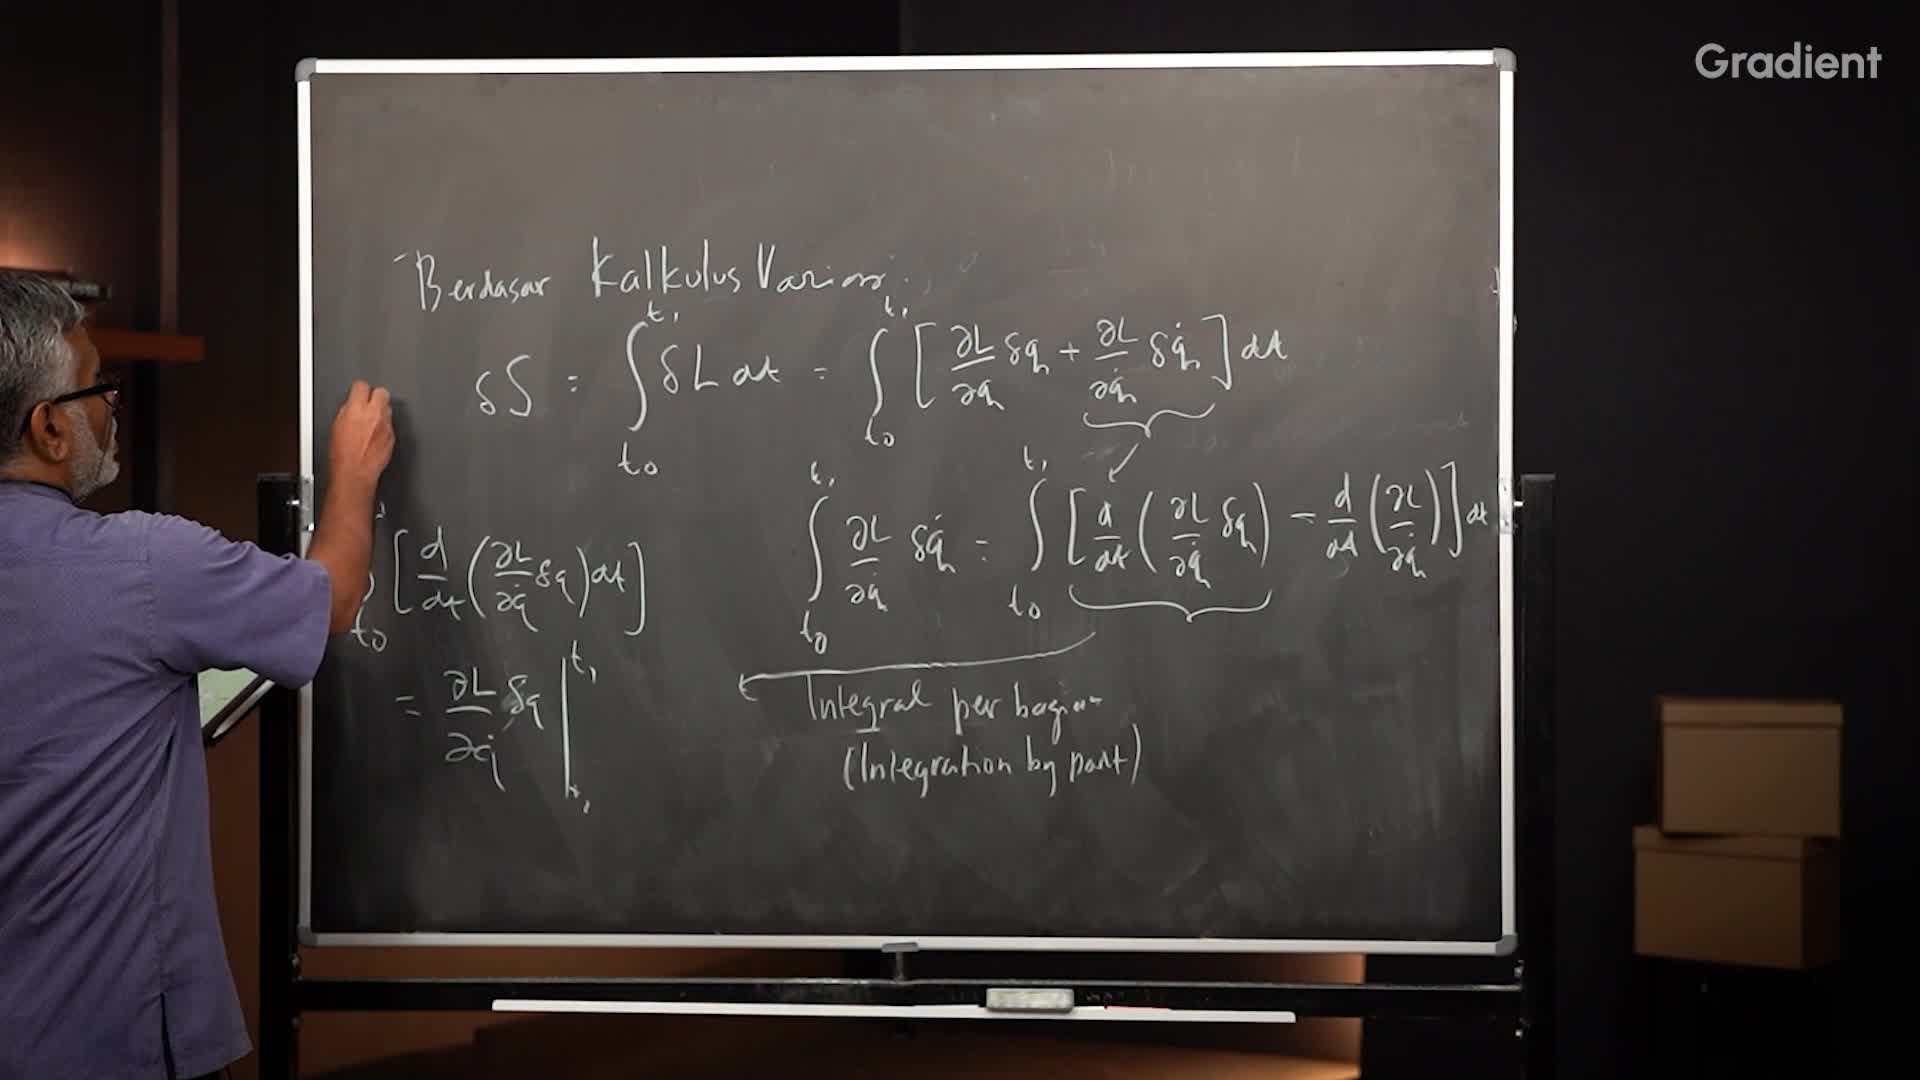 Gradient
Berdasar Kalkulus Variasi
δS = ∫_{t₀}^{t₁} δL dt = ∫_{t₀}^{t₁} [∂L/∂q δq + ∂L/∂q̇ δq̇] dt
∫_{t₀}^{t₁} ∂L/∂q̇ δq̇ = ∫_{t₀}^{t₁} [d/dt (∂L/∂q̇ δq) − d/dt (∂L/∂q̇)] dt
t₀ [d/dt (∂L/∂q̇ δq) dt]
= ∂L/∂q̇ δq |_{t₁}^{t₁}
Integral per bagian
(Integration by part)